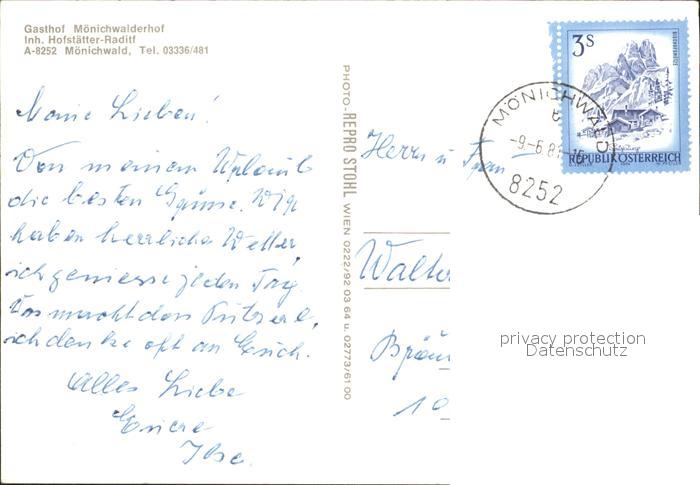 Gasthof Mönichwalderhof
Inh. Hofstätter-Raditf
A-8252 Mönichwald, Tel. 03336/481
Meine Lieben!
Von meinem Urlaub
die besten Grüsse. Wir
haben herrliches Wetter,
ich geniesse jeden Tag.
Was macht das
ich denke oft an Euch.
Alles Liebe
Eure
Ilse.
PHOTO-REPRO STOHL WIEN 0222/92 03 64 u. 02773/61 00
3S
REPUBLIK ÖSTERREICH
MÖNICHWALD
-9.-6.81-
8252
Herrn u Frau
Walte
Bräu
10
privacy protection
Datenschutz